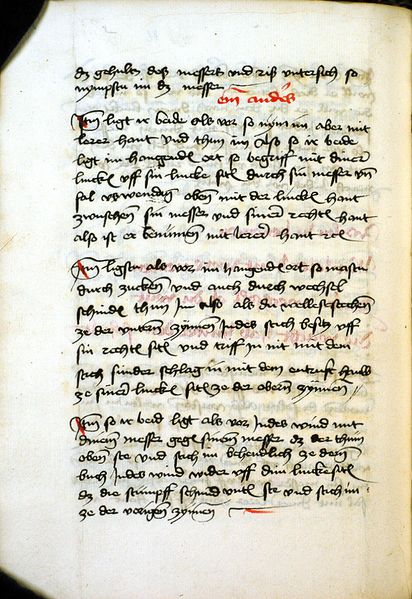 dz gehultz deß messers vnd riß vntersich so
nympstu im dz messer
ein anders
Jtm ligt ir beide als vor so nym im aber mit
lerer hant vnd thun im Also so ir beide
ligt im hangenden ort so begriff mit diner
lincken vff sin lincke siten durch sin messer vn
sal vswendig oben mit der lincken hant
zwuschen sin messer vnd siner rechten hant
also ist er benumen mit lerer hant
Jtm ligstu als vor im hangenden ort so mastu
durch zucken vnd auch durch wechsel
schinden thun im also als du wellest stechen
ze der vntern zynnen Jndes stich besitz vff
sin rechten siten vnd triff in nit mit dem
stich sunder schlag in mit dem entrust haw
ze siner lincken siten ze der obern zynnen
Jtm so ir beid ligt als vor Jndes wind mit
dinem messer gegen sinem messer dz der thum
oben ste vnd stich im behendlich ze dem
buch Jndes wind wider vff din lincke siten
dz die stumpff schnid vnten ste vnd stich im
ze der vorigen zynnen